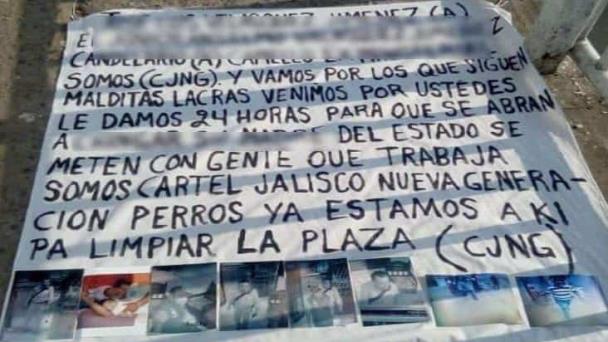 JIMENEZ (A)
E
Z
CANDELARIO (A) CAMELLO
SOMOS (CJNG) Y VAMOS POR LOS QUE SIGUEN
MALDITAS LACRAS VENIMOS POR USTEDES
LE DAMOS 24 HORAS PARA QUE SE ABRAN
A DEL ESTADO SE
METEN CON GENTE QUE TRABAJA
SOMOS CARTEL JALISCO NUEVA GENERA-
CION PERROS YA ESTAMOS A KI
PA LIMPIAR LA PLAZA (CJNG)